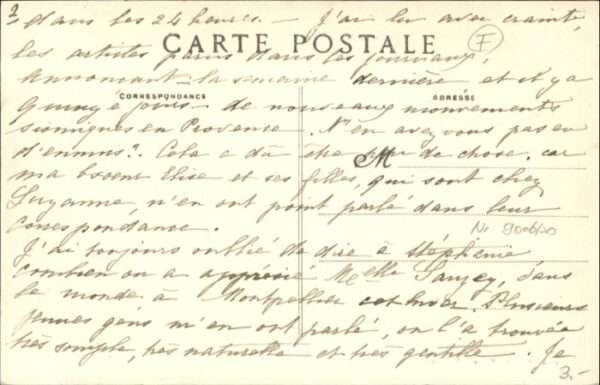 3
dans les 24 heures. — J'ai lu avec crainte,
les articles parus dans les journaux,
CARTE POSTALE
F
annonçant la semaine dernière et il y a
CORRESPONDANCE
ADRESSE
quinze jours de nouveaux mouvements
sismiques en Provence. N'en avez vous pas eu
d'ennuis? Cela a dû être peu de chose, car
M
ma soeur Elise et ses filles, qui sont chez
Suzanne, n'en ont point parlé dans leur
correspondance.
No 9006/20
J'ai toujours oublié de dire à Stéphanie
combien on a apprécié Melle Sanjey, dans
le monde à Montpellier cet hiver. Plusieurs
jeunes gens m'en ont parlé, on l'a trouvée
très simple, très naturelle et très gentille. Je
3.-